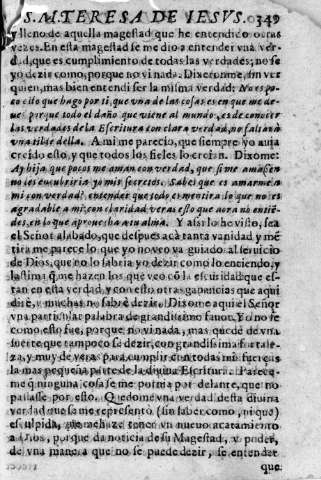 S. M. TERESA DE IESVS. 349
y lleno de aquella magestad que he entendido otras
vezes. En esta magestad se me dio a entender vna ver-
dad, que es cumplimiento de todas las verdades; no se
yo dezir como, porque no vi nada. Dixeronme, sin ver
quien, mas bien entendi ser la misma verdad: No es po-
co esto que hago por ti, que vna de las cosas es en que me de-
ues: porque todo el daño que viene al mundo, es de no conocer
las verdades de la Escritura con clara verdad, no faltarà
vna tilde della. A mi me parecio, que siempre yo auia
creido esto, y que todos los fieles lo creian. Dixome:
Ay hija, que pocos me aman con verdad, que si me amassen
no les encubriria yo mis secretos. Sabes que es amarme a
mi con verdad? entender que todo es mentira lo que no es
agradable a mi: con claridad veras esto que aora no entiē-
des, en lo que aprouecha a tu alma. Y assi lo he visto, sea
el Señor alabado, que despues acà tanta vanidad y mē
tira me parece lo que yo no veo va guiado al seruicio
de Dios, que no lo sabria yo dezir como lo entiendo, y
lastima q̃ me hazen los que veo cō la escuridad que es-
tan en esta verdad, y con esto otras ganancias que aqui
dirè, y muchas no sabrè dezir. Dixome aqui el Señor
vna particular palabra de grandissimo fauor. Yo no sè
como esto fue, porque no vi nada, mas quedè de vna
suerte que tampoco sè dezir, con grandissima fortale-
za, y muy de veras para cumplir con todas mis fuerças
la mas pequeña parte de la diuina Escritura. Parece-
me q̃ ninguna cosa se me pornia por delante, que no
passasse por esto. Quedome vna verdad desta diuina
verdad que se me representò (sin saber como, ni que)
esculpida, que me haze tener vn nueuo acatamiento
a Dios, porque da noticia de su Magestad, y poder,
de vna manera que no se puede dezir, se entender
que